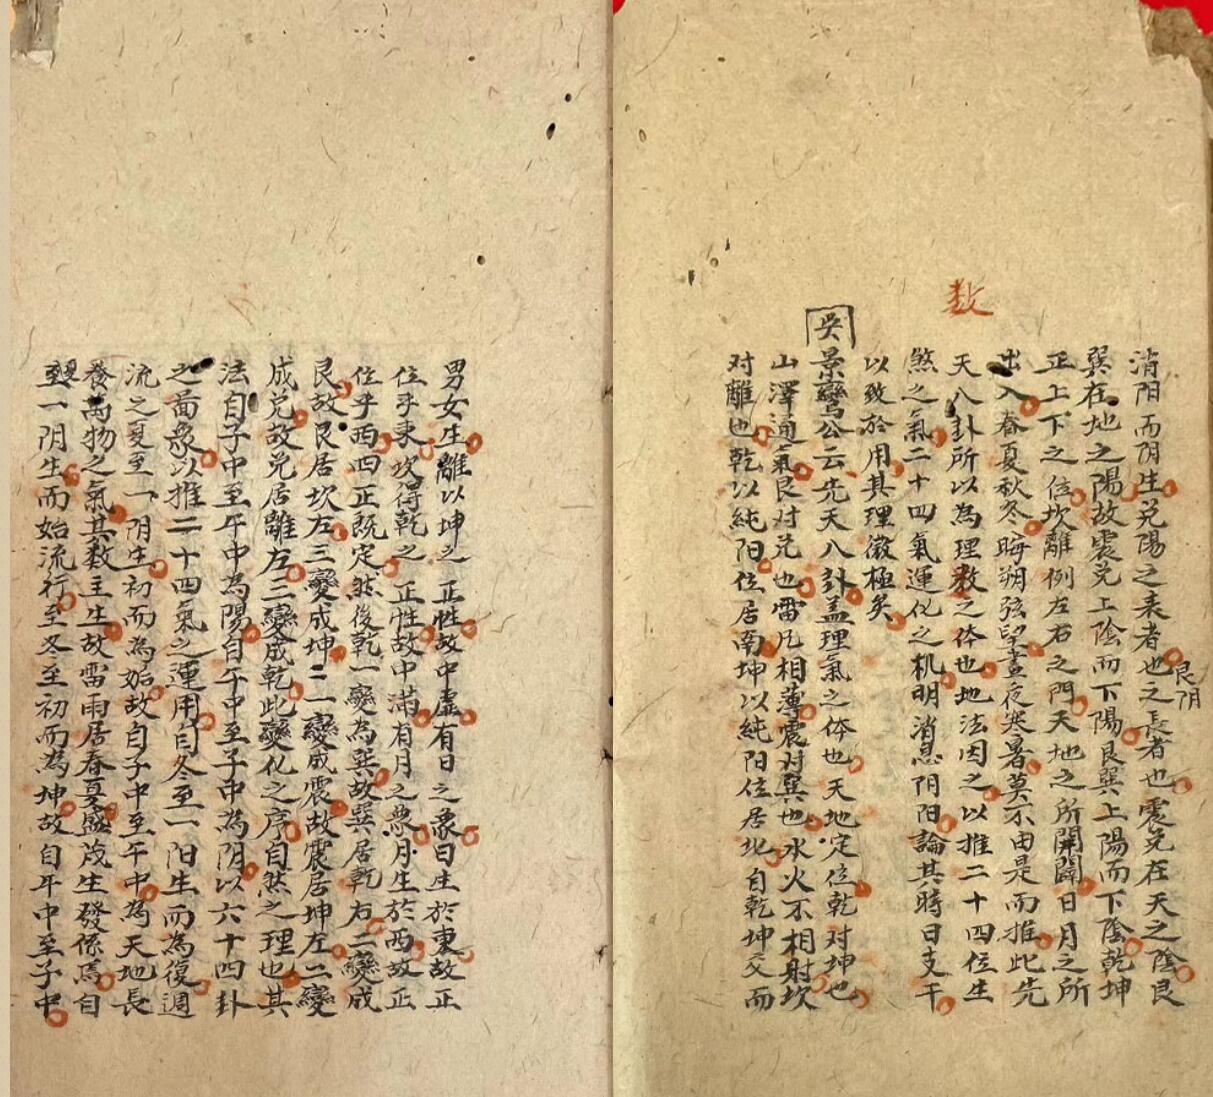 数
消阳而阴生兑陽之表者也之長者也震兑在天之陰艮
艮阴
巽在地之陽故震兑上陰而下陽艮巽上陽而下陰乾坤
正上下之位坎離例左右之門天地之所開闢日月之所
出入春夏秋冬晦朔弦望晝夜寒暑莫不由是而推此先
天八卦所以為理数之体也地法因之以推二十四位生
煞之氣二十四氣運化之机明消息阴阳論其時日支干
以致於用其理微極矣
吳景鸞公云先天八卦盖理氣之体也天地定位乾对坤也
山澤通氣艮对兑也雷凡相薄震对巽也水火不相射坎
对離也乾以純阳位居南坤以純阳位居北自乾坤交而
男女生離以坤之正性故中虚有日之象日生於東故正
位乎東坎得乾之正性故中滿有月之象月生於西故正
位乎西四正既定然後乾一變為巽故巽居乾右二變成
艮故艮居坎左三變成坤二一變成震故震居坤左二變
成兑故兑居離左三變成乾此變化之序自然之理也其
法自子中至午中為陽自午中至子中為阴以六十四卦
之面象以推二十四氣之運用自冬至一阳生而為復週
流之夏至一阴生初而為姤故自子中至午中為天地長
養萬物之氣其数主生故雷雨居春夏盛茂生發係焉自
至一阴生而始流行至冬至初而為坤故自午中至子中